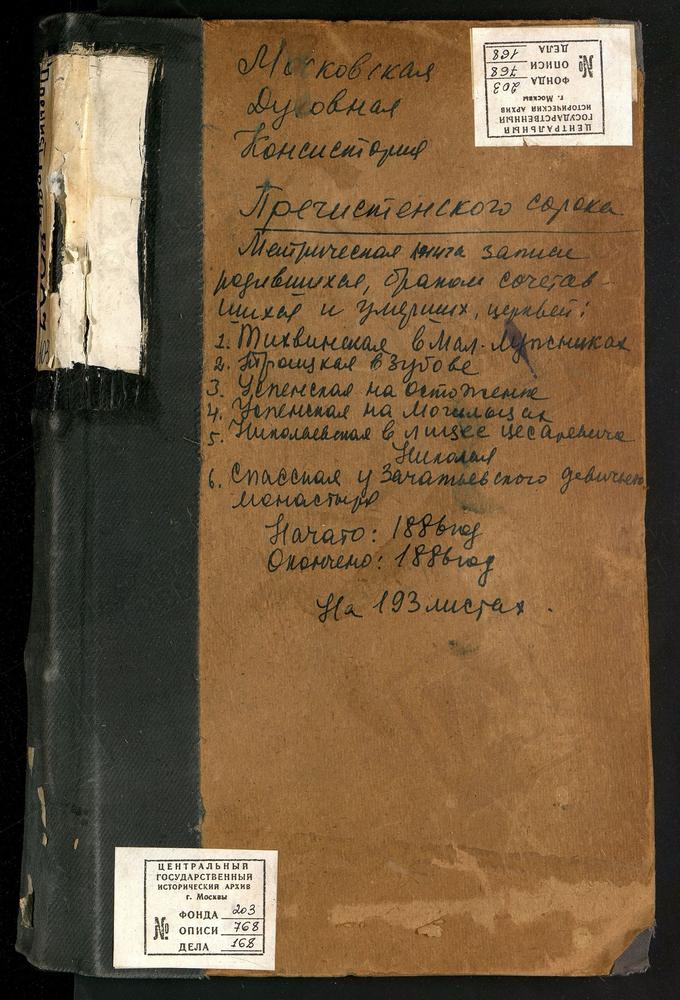 Московская
Духовная
Консистория
Пречистенского сорока
Метрическая книга записи
родившихся, браком сочетав-
шихся и умерших, церквей:
1. Тихвинская в Мал. Лужниках
2. Троицкая в Зубове
3. Успенская на остоженке
4. Успенская на Могильцах
5. Николаевская в лицее цесаревича
Николая
6. Спасская у Зачатьевского девичьего
монастыря
Начато: 1886год
Окончено: 1886год
На 193 листах.
ЦЕНТРАЛЬНЫЙ
ГОСУДАРСТВЕННЫЙ
ИСТОРИЧЕСКИЙ АРХИВ
г. Москвы
№
ФОНДА 203
ОПИСИ 768
ДЕЛА 168
ЦЕНТРАЛЬНЫЙ
ГОСУДАРСТВЕННЫЙ
ИСТОРИЧЕСКИЙ АРХИВ
г. Москвы
№
ФОНДА 203
ОПИСИ 768
ДЕЛА 168